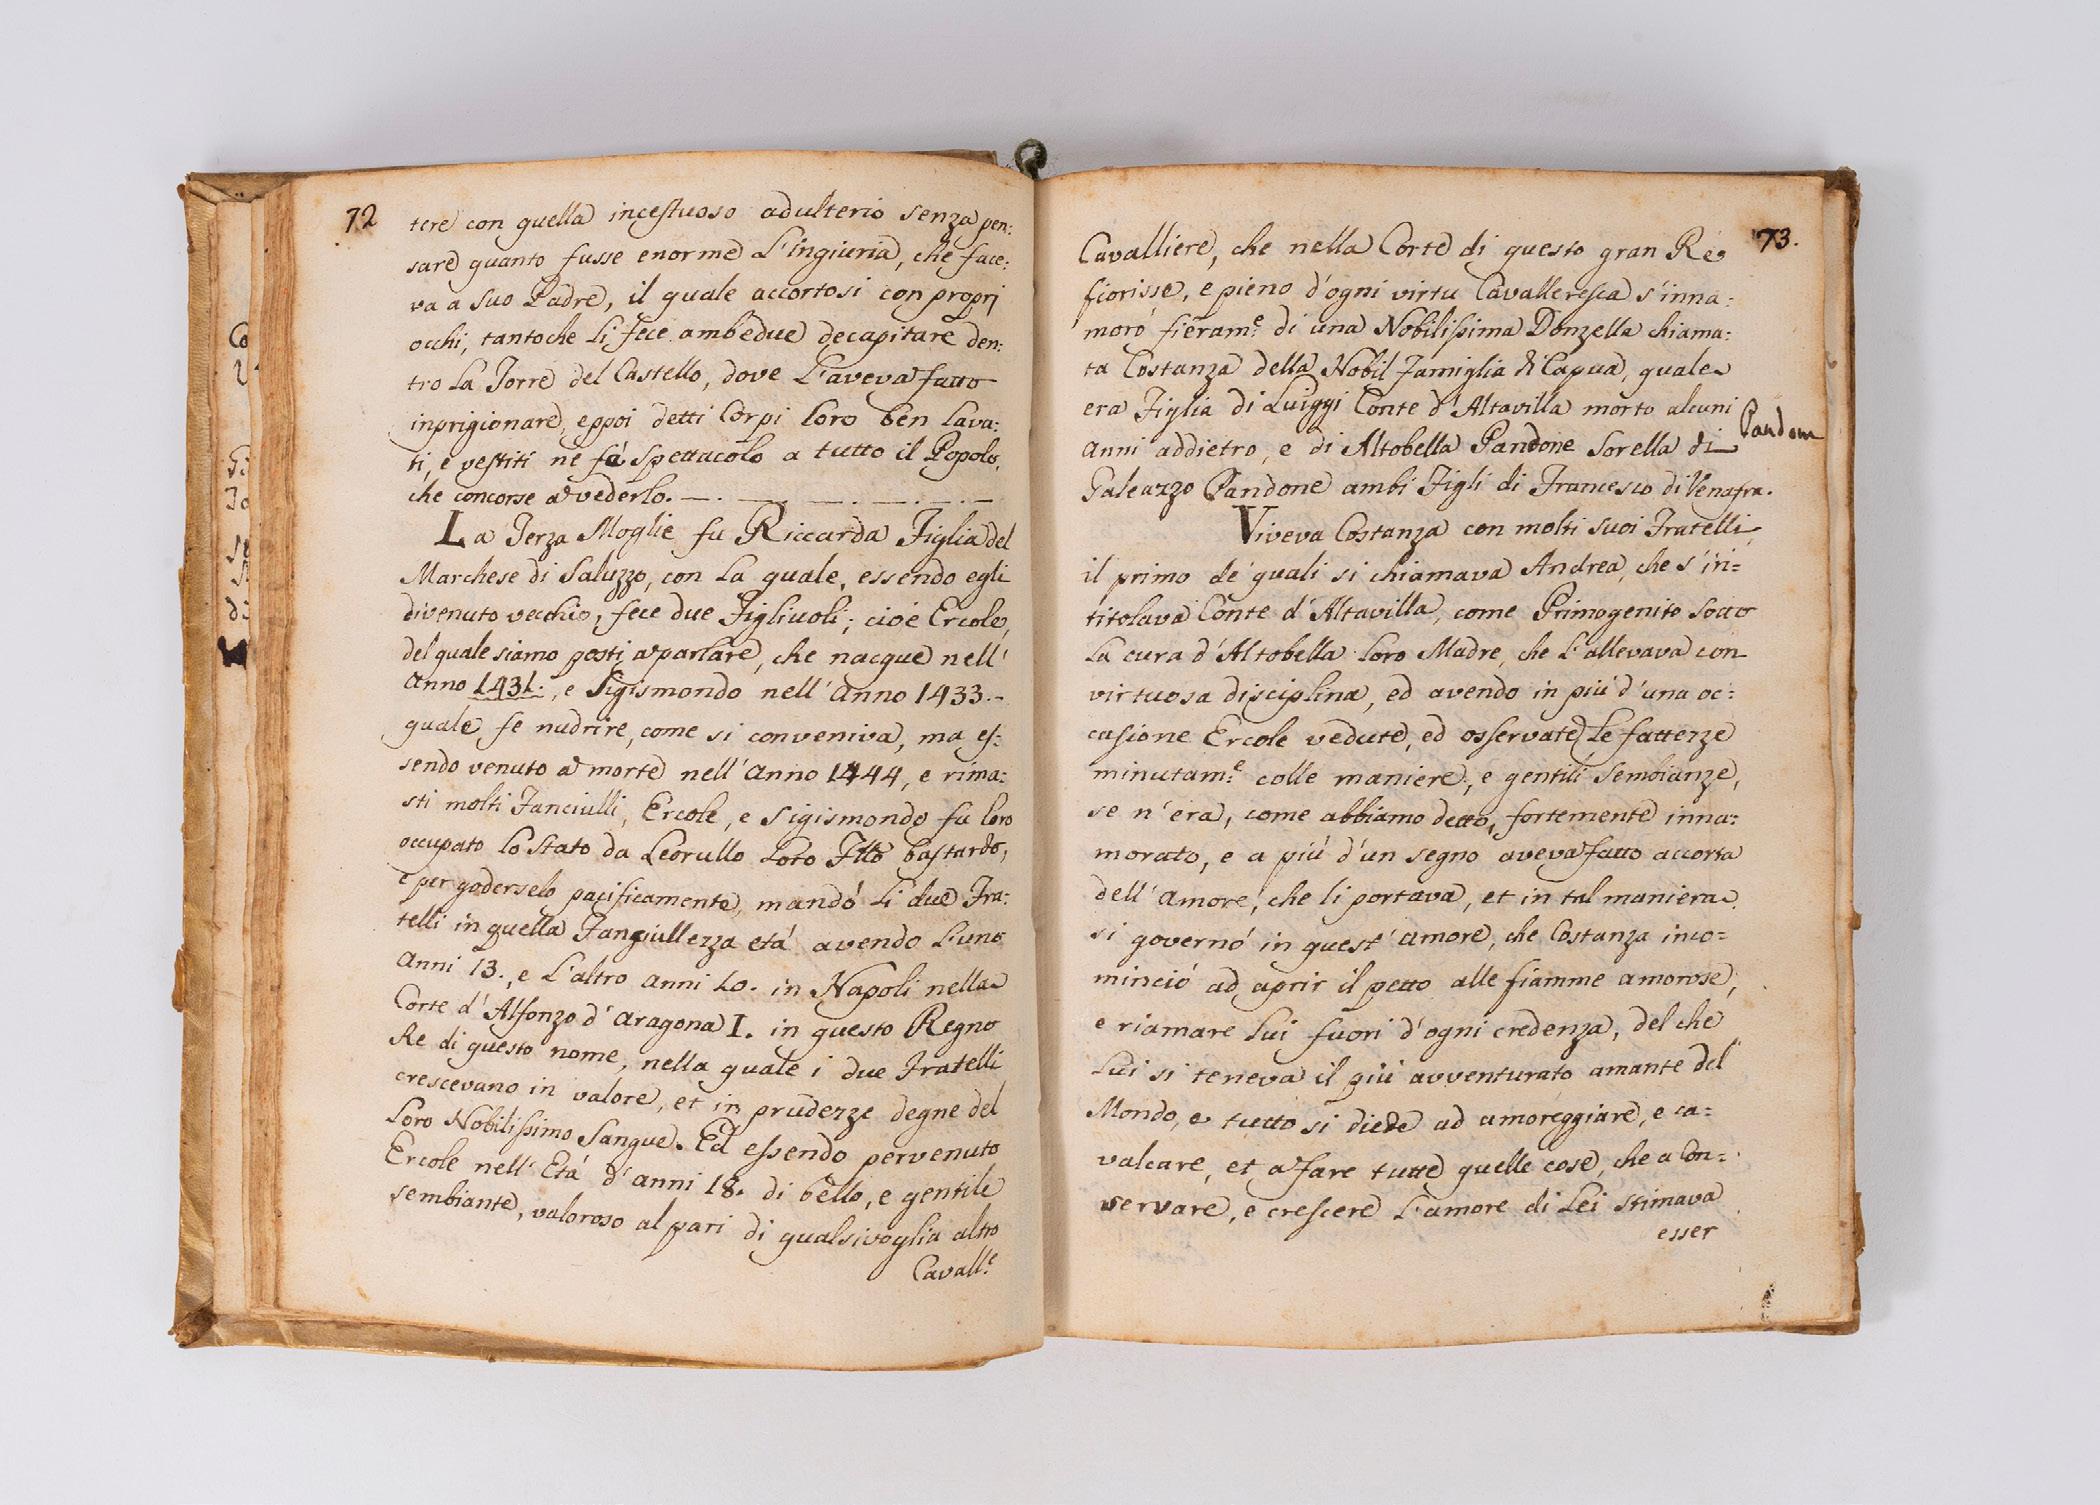 72
tere con quella incestuoso adulterio senza pen:
sare quanto fusse enorme L'ingiuria, che face:
va a suo Padre, il quale accortosi con proprj
occhi, tantoche li fece ambedue decapitare den:
tro La Torre del Castello, dove L'aveva fatto
inprigionare, eppoi detti Corpi loro ben lava:
ti, e vestiti ne fà spettacolo a tutto il Popolo,
che concorse a vederlo. —. —. —. —. —. —
La Terza Moglie fu Riccarda Figlia del
Marchese di Saluzzo, con La quale, essendo egli
divenuto vecchio, fece due Figliuoli; cioè Ercole,
del quale siamo posti a parlare, che nacque nell'
Anno 1431., e Sigismondo nell'Anno 1433.-
quale fe nudrire, come si conveniva, ma es:
sendo venuto a morte nell'Anno 1444, e rima:
sti molti Fanciulli, Ercole, e Sigismondo fu loro
occupato Lo Stato da Leorullo loro Fllo bastardo,
e per goderselo pacificamente, mandò Li due Fra:
telli in quella Fanciullezza età avendo L'uno
Anni 13., e L'altro Anni 10. in Napoli nella
Corte d'Alfonzo d'Aragona I. in questo Regno
Re di questo nome, nella quale i due Fratelli
crescevano in valore, et in prudezze degne del
Loro Nobilissimo Sangue. Ed essendo pervenuto
Ercole nell'Età d'anni 18. di bello, e gentile
sembiante, valoroso al pari di qualsivoglia altro
Cavall:e
73.
Cavalliere, che nella Corte di questo gran Re
fiorisse, e pieno d'ogni virtu Cavalleresca s'inna:
morò fieram:e di una Nobilissima Donzella chiama:
ta Costanza della Nobil Famiglia di Capua, quale
era Figlia di Luiggi Conte d'Altavilla morto alcuni
Anni addietro, e di Altobella Pandone Sorella di
Pandone
Galeazzo Pandone ambi Figli di Francesco di Venafra.
Viveva Costanza con molti suoi Fratelli,
il primo de' quali si chiamava Andrea, che s'in=
titolava Conte d'Altavilla, come Primogenito sotto
La cura d'Altobella loro Madre, che L'allevava con
virtuosa disciplina, ed avendo in più d'una oc:
casione Ercole vedute, ed osservate Le fattezze
minutam:e colle maniere, e gentili sembianze,
se n'era, come abbiamo detto, fortemente inna:
morato, e a più d'un segno aveva fatto accorta
dell'Amore, che li portava, et in tal maniera
si governò in quest'Amore, che Costanza inco=
minciò ad aprir il petto alle fiamme amorose,
e riamare Lui fuori d'ogni credenza, del che
Lui si teneva il più avventurato amante del
Mondo, e tutto si diede ad amoreggiare, e ca=
valcare, et a fare tutte quelle cose, che a Con=
servare, e crescere L'amore di Lei stimava
esser